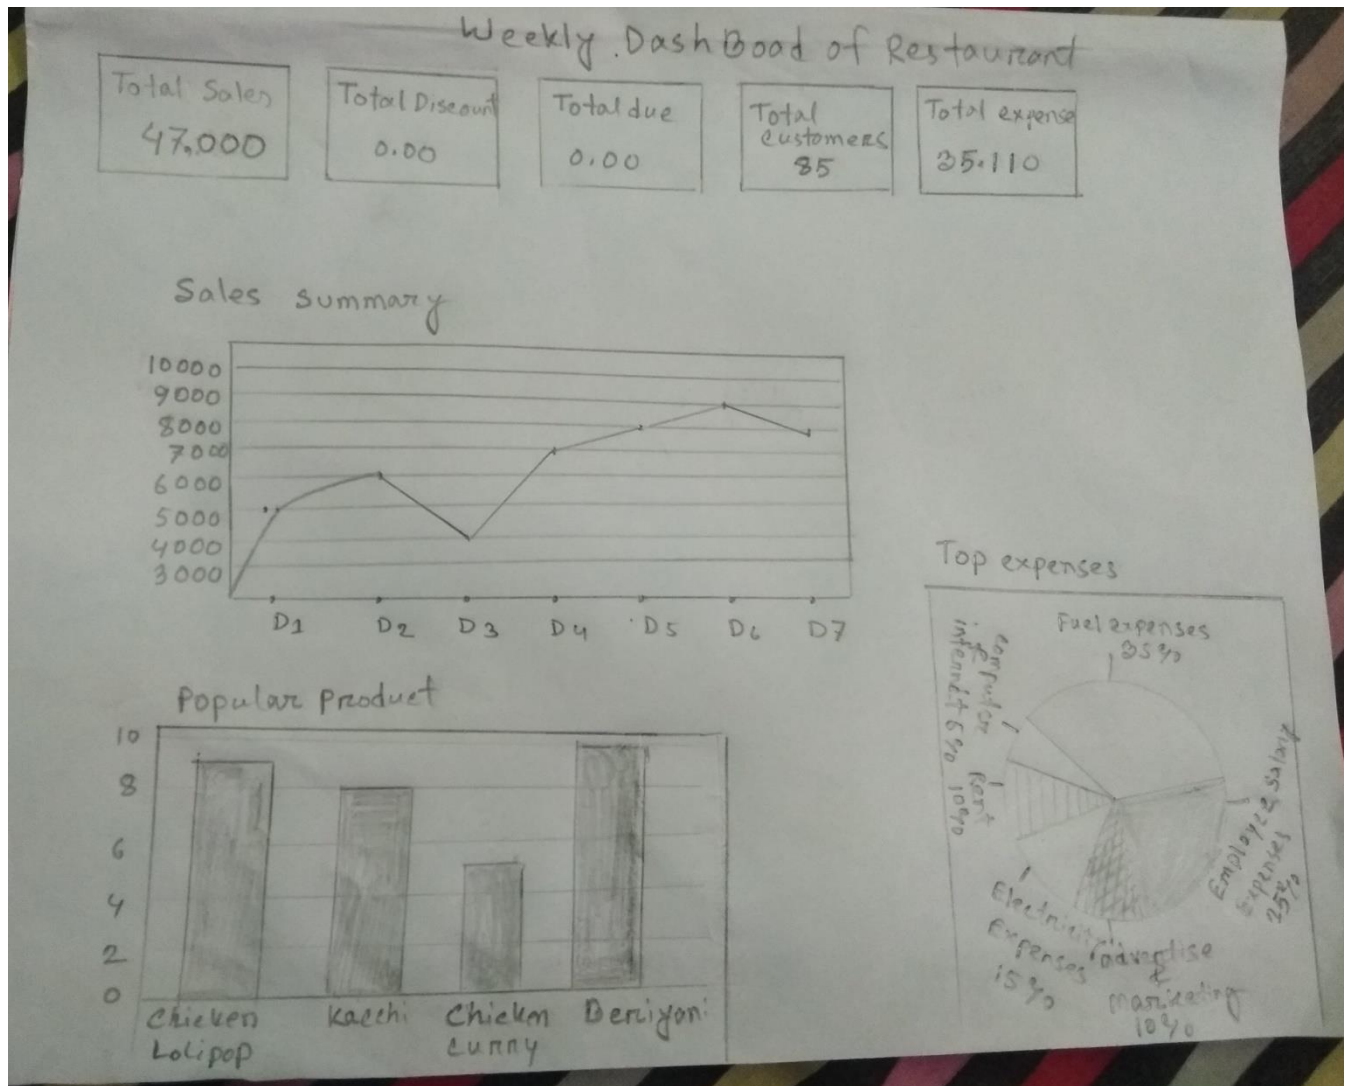 Weekly DashBoad of Restaurant
Total Sales
47.000
Total Discount
0.00
Total due
0.00
Total
customers
85
Total expense
35.110
Sales summary
10000
9000
8000
7000
6000
5000
4000
3000
D1 D2 D3 D4 D5 D6 D7
Popular Product
10
8
6
4
2
0
Chicken
Lolipop
Kacchi
Chicken
curry
Beriyani
Top expenses
Fuel expenses
35%
Employee salary
Expenses
25%
advertise
&
Marketing
10%
Electricity
Expenses
15%
Rent
10%
computer
&
internet 5%